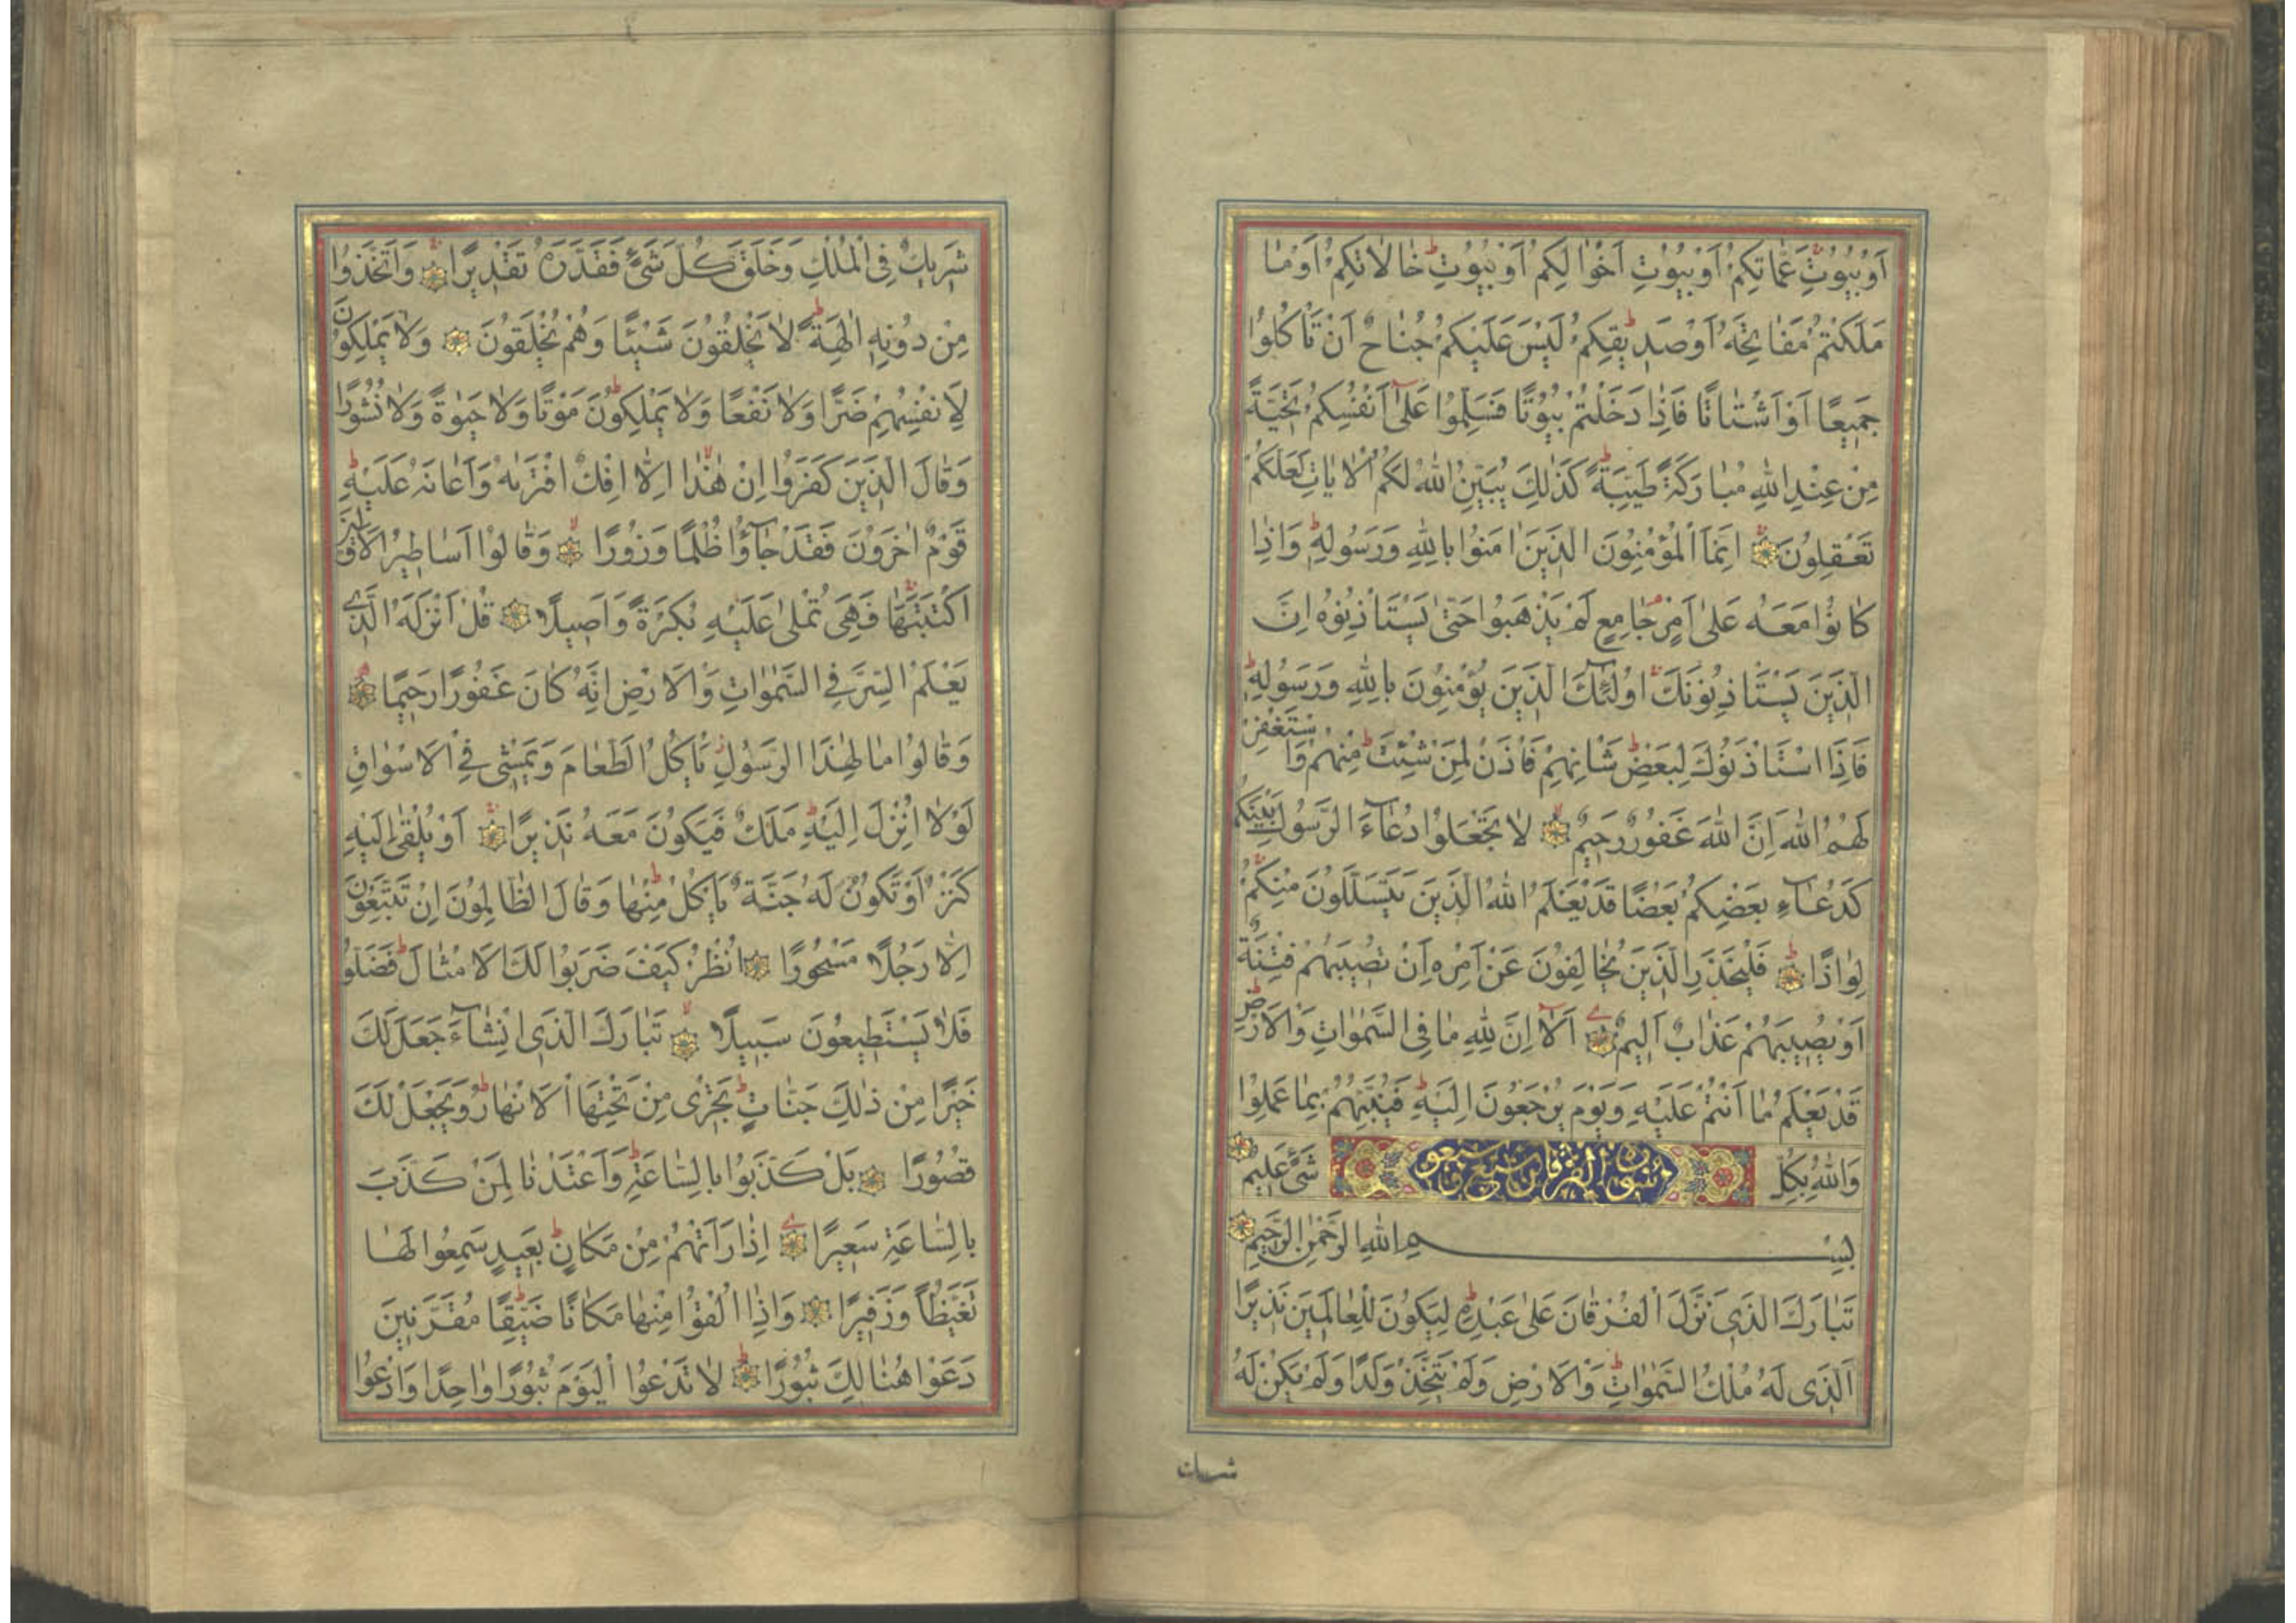 اَوْ بُيُوتِ عَمَّاتِكُمْ اَوْ بُيُوتِ اَخْوَالِكُمْ اَوْ بُيُوتِ خَالَاتِكُمْ اَوْ مَا
مَلَكْتُمْ مَفَاتِحَهُ اَوْ صَدِيقِكُمْ لَيْسَ عَلَيْكُمْ جُنَاحٌ اَنْ تَأْكُلُوا
جَمِيعًا اَوْ اَشْتَاتًا فَاِذَا دَخَلْتُمْ بُيُوتًا فَسَلِّمُوا عَلٰى اَنْفُسِكُمْ تَحِيَّةً
مِنْ عِنْدِ اللهِ مُبَارَكَةً طَيِّبَةً كَذٰلِكَ يُبَيِّنُ اللهُ لَكُمُ الْاٰيَاتِ لَعَلَّكُمْ
تَعْقِلُونَ اِنَّمَا الْمُؤْمِنُونَ الَّذِينَ اٰمَنُوا بِاللهِ وَرَسُولِهِ وَاِذَا
كَانُوا مَعَهُ عَلٰى اَمْرٍ جَامِعٍ لَمْ يَذْهَبُوا حَتّٰى يَسْتَأْذِنُوهُ اِنَّ
الَّذِينَ يَسْتَأْذِنُونَكَ اُولٰئِكَ الَّذِينَ يُؤْمِنُونَ بِاللهِ وَرَسُولِهِ
فَاِذَا اسْتَأْذَنُوكَ لِبَعْضِ شَأْنِهِمْ فَأْذَنْ لِمَنْ شِئْتَ مِنْهُمْ وَاسْتَغْفِرْ
لَهُمُ اللهَ اِنَّ اللهَ غَفُورٌ رَحِيمٌ لَا تَجْعَلُوا دُعَاءَ الرَّسُولِ بَيْنَكُمْ
كَدُعَاءِ بَعْضِكُمْ بَعْضًا قَدْ يَعْلَمُ اللهُ الَّذِينَ يَتَسَلَّلُونَ مِنْكُمْ
لِوَاذًا فَلْيَحْذَرِ الَّذِينَ يُخَالِفُونَ عَنْ اَمْرِهِ اَنْ تُصِيبَهُمْ فِتْنَةٌ
اَوْ يُصِيبَهُمْ عَذَابٌ اَلِيمٌ اَلَا اِنَّ لِلهِ مَا فِى السَّمٰوَاتِ وَالْاَرْضِ
قَدْ يَعْلَمُ مَا اَنْتُمْ عَلَيْهِ وَيَوْمَ يُرْجَعُونَ اِلَيْهِ فَيُنَبِّئُهُمْ بِمَا عَمِلُوا
وَاللهُ بِكُلِّ شَىْءٍ عَلِيمٌ
بِسْمِ اللهِ الرَّحْمٰنِ الرَّحِيمِ
تَبَارَكَ الَّذِى نَزَّلَ الْفُرْقَانَ عَلٰى عَبْدِهِ لِيَكُونَ لِلْعَالَمِينَ نَذِيرًا
اَلَّذِى لَهُ مُلْكُ السَّمٰوَاتِ وَالْاَرْضِ وَلَمْ يَتَّخِذْ وَلَدًا وَلَمْ يَكُنْ لَهُ
شَرِيكٌ فِى الْمُلْكِ وَخَلَقَ كُلَّ شَىْءٍ فَقَدَّرَهُ تَقْدِيرًا وَاتَّخَذُوا
مِنْ دُونِهِ اٰلِهَةً لَا يَخْلُقُونَ شَيْئًا وَهُمْ يُخْلَقُونَ وَلَا يَمْلِكُونَ
لِاَنْفُسِهِمْ ضَرًّا وَلَا نَفْعًا وَلَا يَمْلِكُونَ مَوْتًا وَلَا حَيٰوةً وَلَا نُشُورًا
وَقَالَ الَّذِينَ كَفَرُوا اِنْ هٰذَا اِلَّا اِفْكٌ افْتَرٰيهُ وَاَعَانَهُ عَلَيْهِ
قَوْمٌ اٰخَرُونَ فَقَدْ جَاؤُا ظُلْمًا وَزُورًا وَقَالُوا اَسَاطِيرُ الْاَوَّلِينَ
اكْتَتَبَهَا فَهِىَ تُمْلٰى عَلَيْهِ بُكْرَةً وَاَصِيلًا قُلْ اَنْزَلَهُ الَّذِى
يَعْلَمُ السِّرَّ فِى السَّمٰوَاتِ وَالْاَرْضِ اِنَّهُ كَانَ غَفُورًا رَحِيمًا
وَقَالُوا مَا لِهٰذَا الرَّسُولِ يَأْكُلُ الطَّعَامَ وَيَمْشِى فِى الْاَسْوَاقِ
لَوْلَا اُنْزِلَ اِلَيْهِ مَلَكٌ فَيَكُونَ مَعَهُ نَذِيرًا اَوْ يُلْقٰى اِلَيْهِ
كَنْزٌ اَوْ تَكُونُ لَهُ جَنَّةٌ يَأْكُلُ مِنْهَا وَقَالَ الظَّالِمُونَ اِنْ تَتَّبِعُونَ
اِلَّا رَجُلًا مَسْحُورًا اُنْظُرْ كَيْفَ ضَرَبُوا لَكَ الْاَمْثَالَ فَضَلُّوا
فَلَا يَسْتَطِيعُونَ سَبِيلًا تَبَارَكَ الَّذِى اِنْ شَاءَ جَعَلَ لَكَ
خَيْرًا مِنْ ذٰلِكَ جَنَّاتٍ تَجْرِى مِنْ تَحْتِهَا الْاَنْهَارُ وَيَجْعَلْ لَكَ
قُصُورًا بَلْ كَذَّبُوا بِالسَّاعَةِ وَاَعْتَدْنَا لِمَنْ كَذَّبَ
بِالسَّاعَةِ سَعِيرًا اِذَا رَاَتْهُمْ مِنْ مَكَانٍ بَعِيدٍ سَمِعُوا لَهَا
تَغَيُّظًا وَزَفِيرًا وَاِذَا اُلْقُوا مِنْهَا مَكَانًا ضَيِّقًا مُقَرَّنِينَ
دَعَوْا هُنَالِكَ ثُبُورًا لَا تَدْعُوا الْيَوْمَ ثُبُورًا وَاحِدًا وَادْعُوا